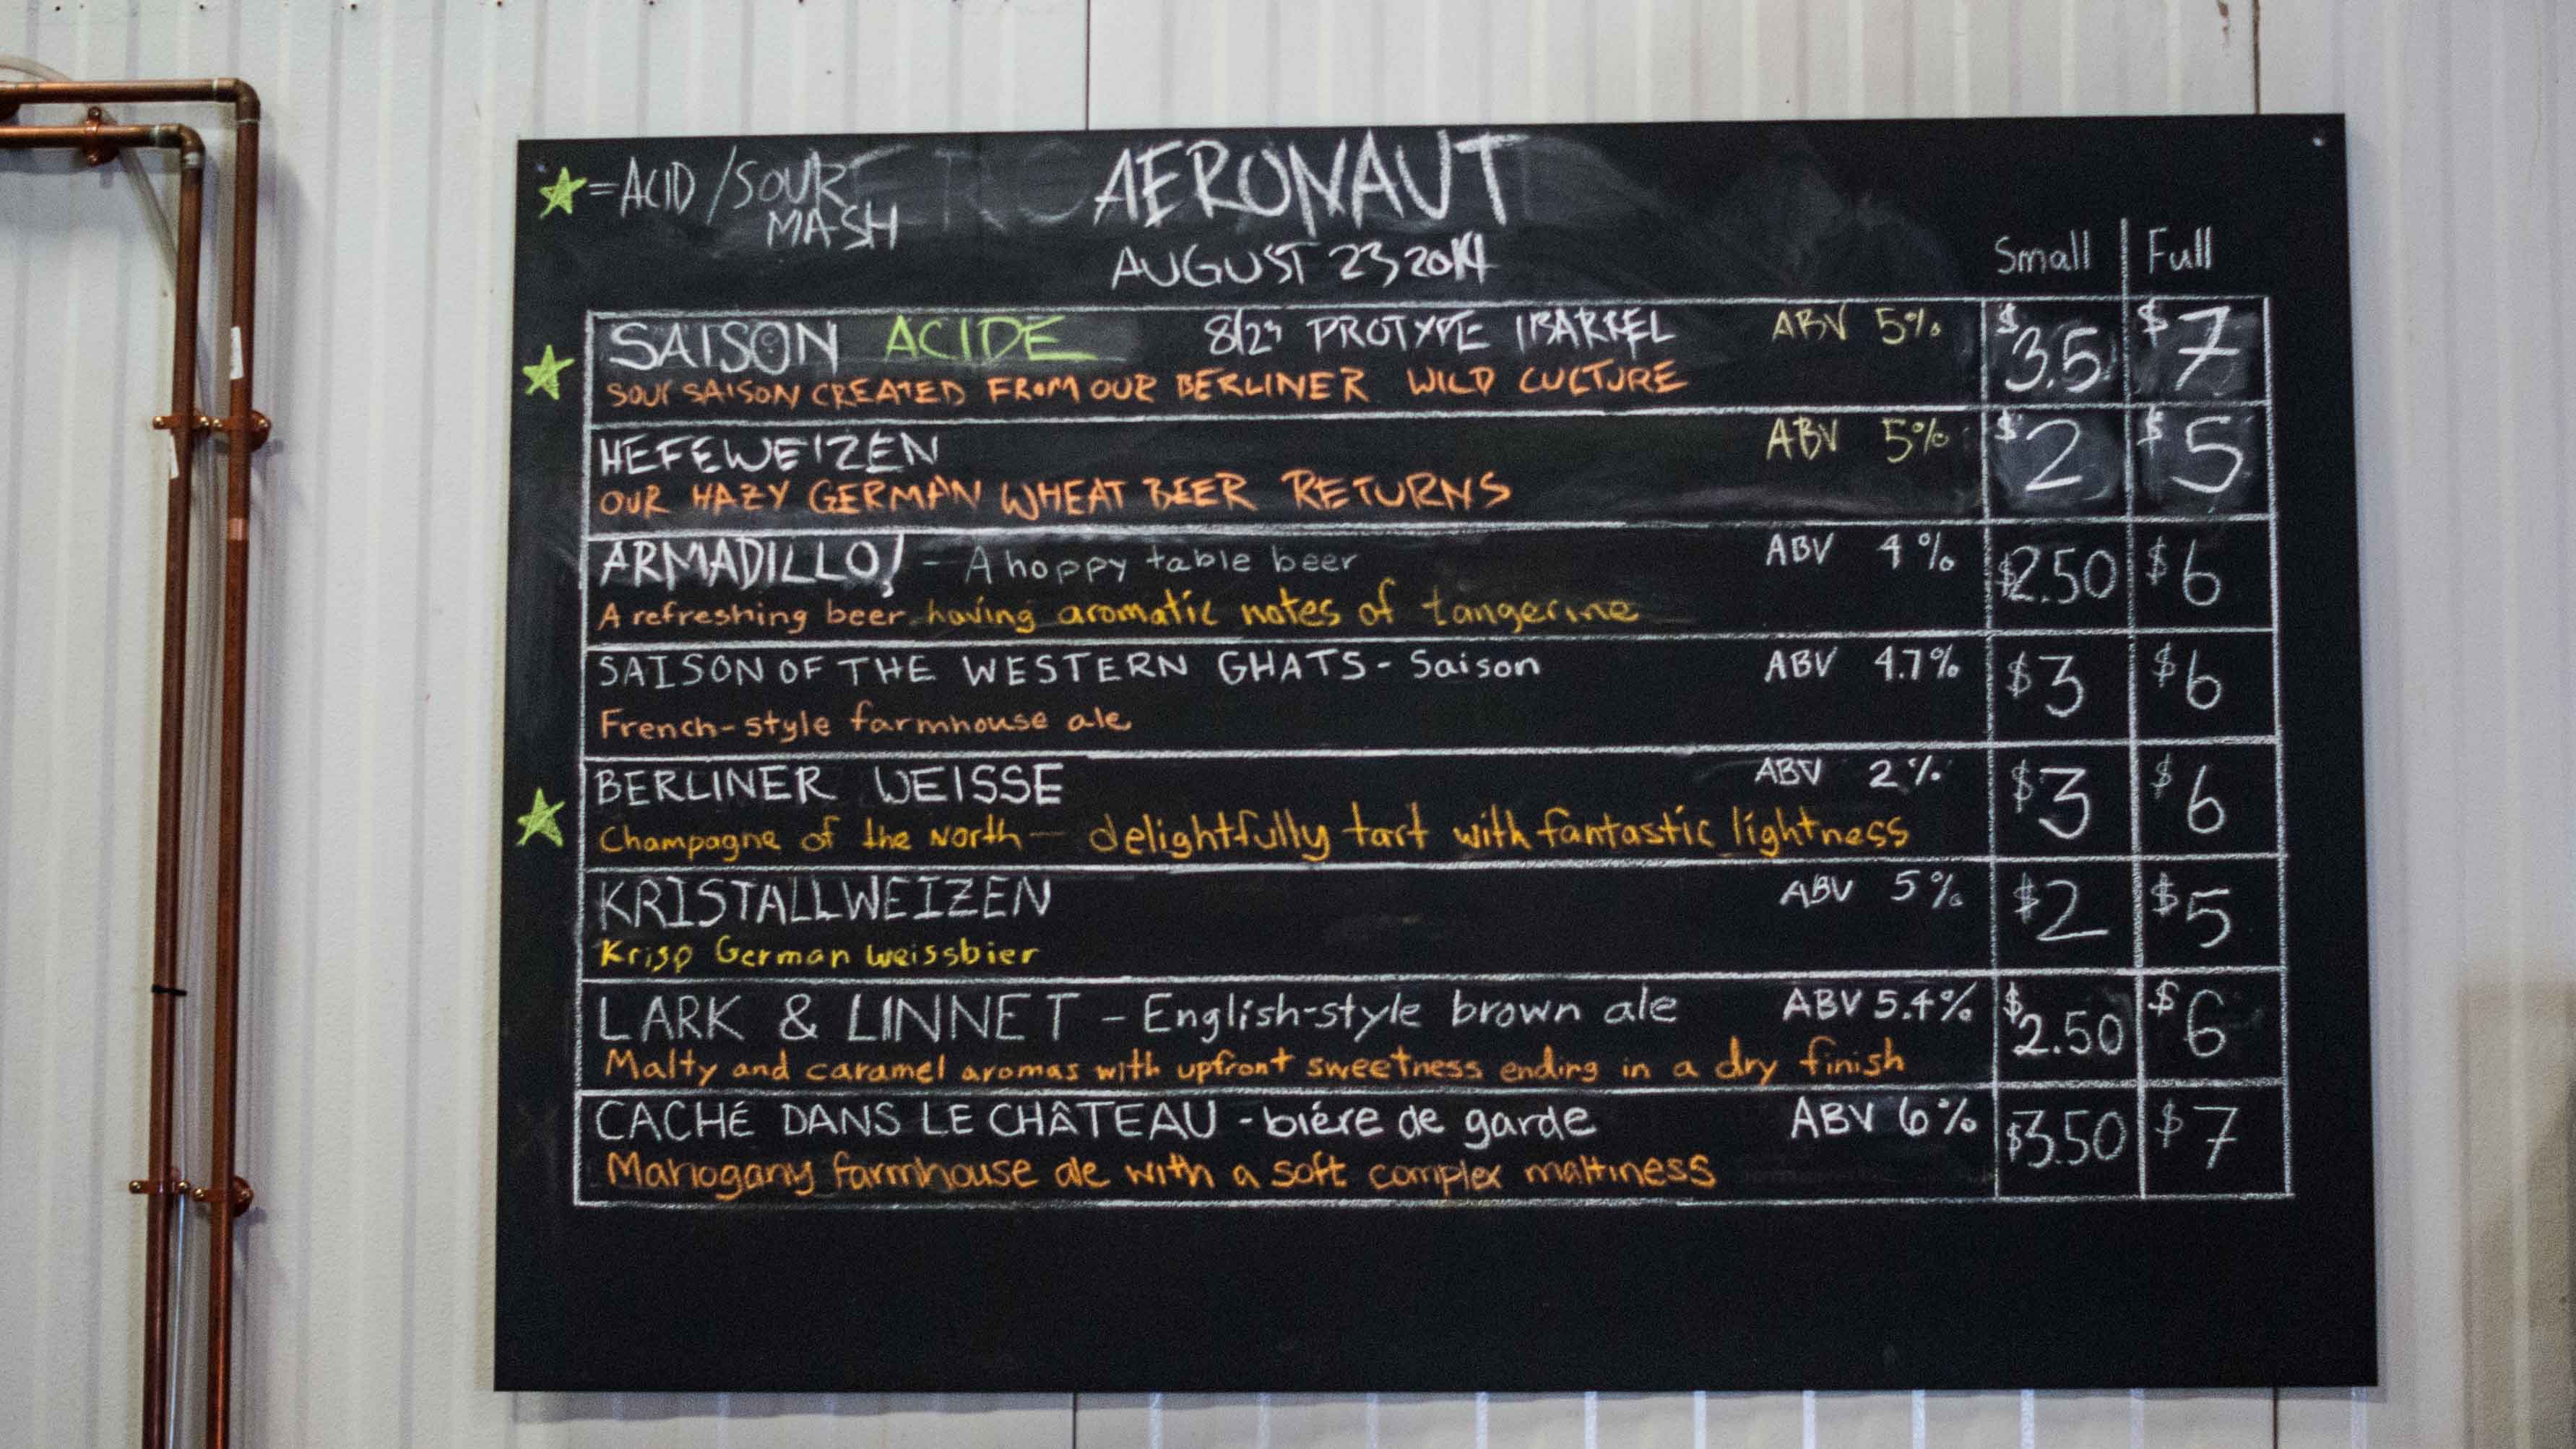 ★=ACID/SOUR
MASH
AERONAUT
AUGUST 23 2014
Small Full
★ SAISON ACIDE 8/23 PROTYPE 1 BARREL ABV 5% $3.5 $7
SOUR SAISON CREATED FROM OUR BERLINER WILD CULTURE
HEFEWEIZEN ABV 5% $2 $5
OUR HAZY GERMAN WHEAT BEER RETURNS
ARMADILLO! - A hoppy table beer ABV 4% $2.50 $6
A refreshing beer having aromatic notes of tangerine
SAISON OF THE WESTERN GHATS - Saison ABV 4.7% $3 $6
French-style farmhouse ale
★ BERLINER WEISSE ABV 2% $3 $6
Champagne of the North — delightfully tart with fantastic lightness
KRISTALLWEIZEN ABV 5% $2 $5
Krisp German Weissbier
LARK & LINNET - English-style brown ale ABV 5.4% $2.50 $6
Malty and caramel aromas with upfront sweetness ending in a dry finish
CACHÉ DANS LE CHÂTEAU - biére de garde ABV 6% $3.50 $7
Mahogany farmhouse ale with a soft complex maltiness